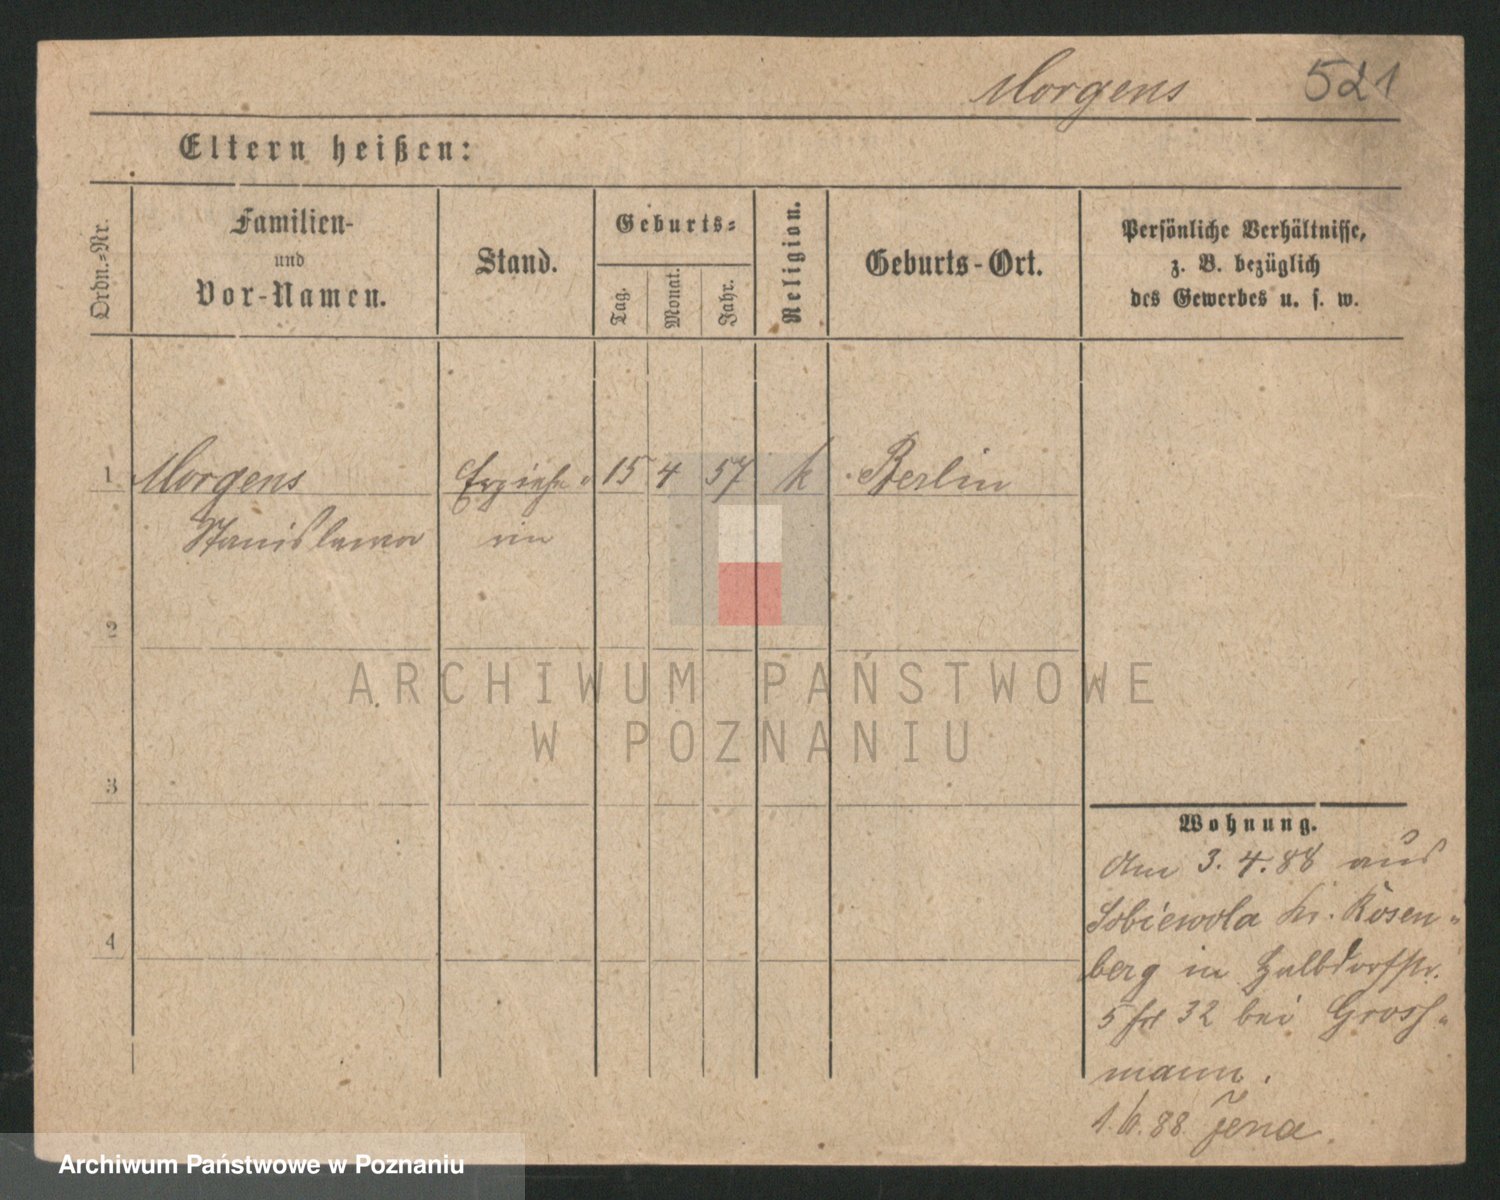 Morgens 521
Eltern heißen:
Ordn.-Nr.
Familien-
und
Vor-Namen.
Stand.
Geburts-
Tag.
Monat.
Jahr.
Religion.
Geburts-Ort.
Persönliche Verhältnisse,
z. B. bezüglich
des Gewerbes u. s. w.
1 Morgens Erziehe- 15 4 57 k Berlin
Stanislawa rin
2
3
4
Wohnung.
Am 3.4.88 aus
Sobiewola Kr. Rosen-
berg in Halbdorfstr.
5 32 bei Gross-
mann.
1.6.88 Jena
ARCHIWUM PAŃSTWOWE
W POZNANIU
Archiwum Państwowe w Poznaniu